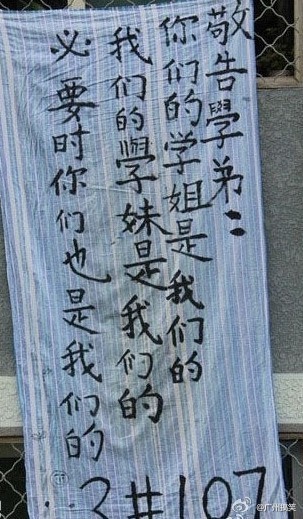 敬告學弟：
你们的学姐是我们的
我们的學妹是我们的
必要时你们也是我们的
3#107
@广州搞笑